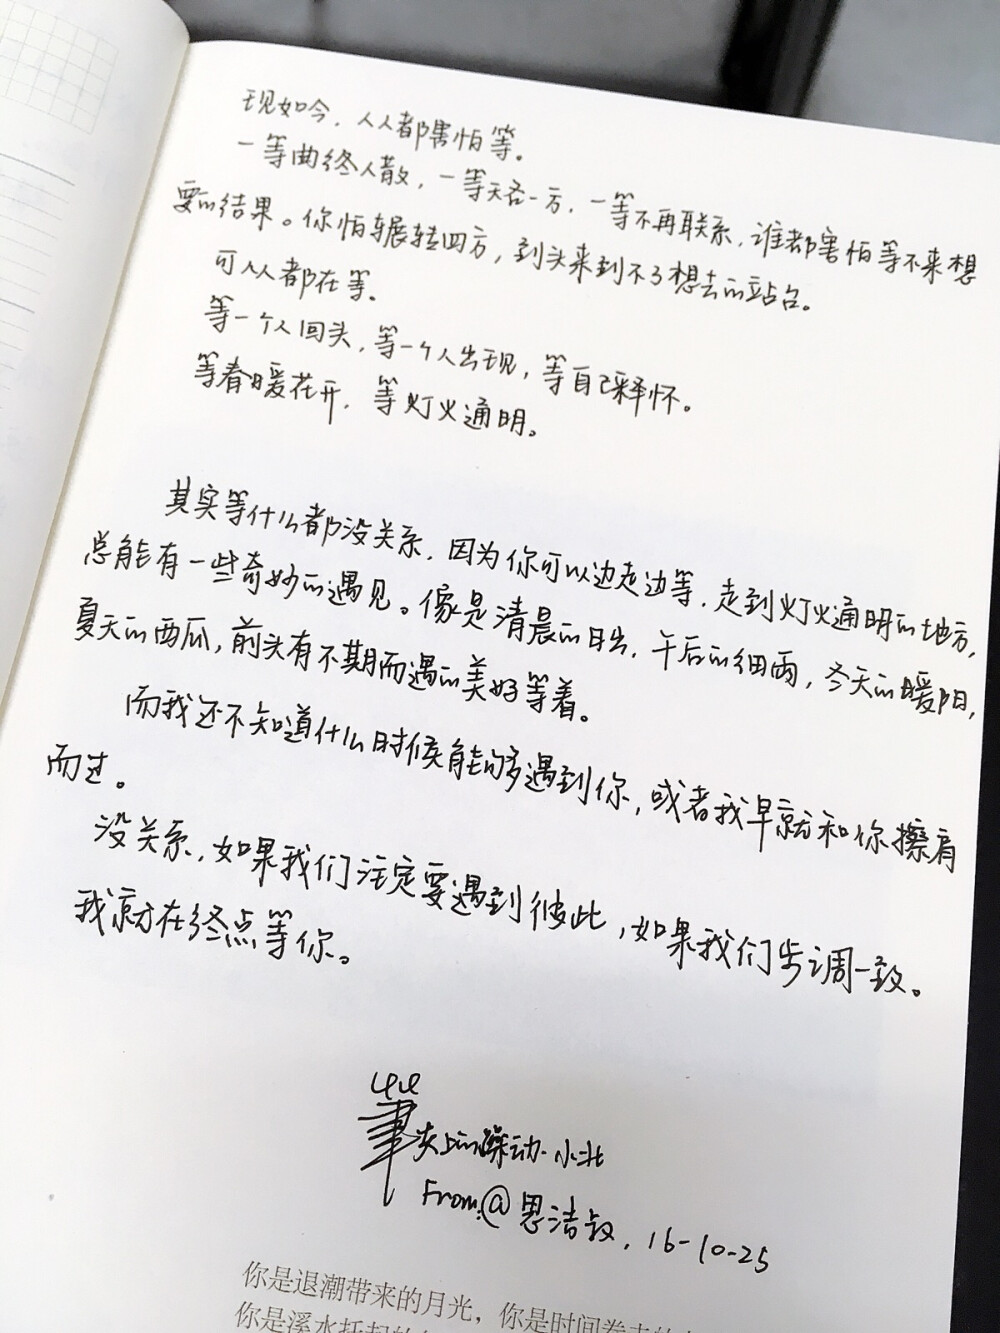 现如今，人人都害怕等。
一等曲终人散，一等天各一方，一等不再联系，谁都害怕等不来想
要的结果。你怕辗转四方，到头来到不了想去的站台。
可人人都在等。
等一个人回头，等一个人出现，等自己释怀。
等春暖花开，等灯火通明。
其实等什么都没关系，因为你可以边走边等，走到灯火通明的地方，
总能有一些奇妙的遇见。像是清晨的日出，午后的细雨，冬天的暖阳，
夏天的西瓜，前头有不期而遇的美好等着。
而我还不知道什么时候能够遇到你，或者我早就和你擦肩
而过。
没关系，如果我们注定要遇到彼此，如果我们步调一致。
我就在终点等你。
筆尖上的躁动·小北
From:@思洁, 16-10-25
你是退潮带来的月光，你是时间卷
你是溪水托起的